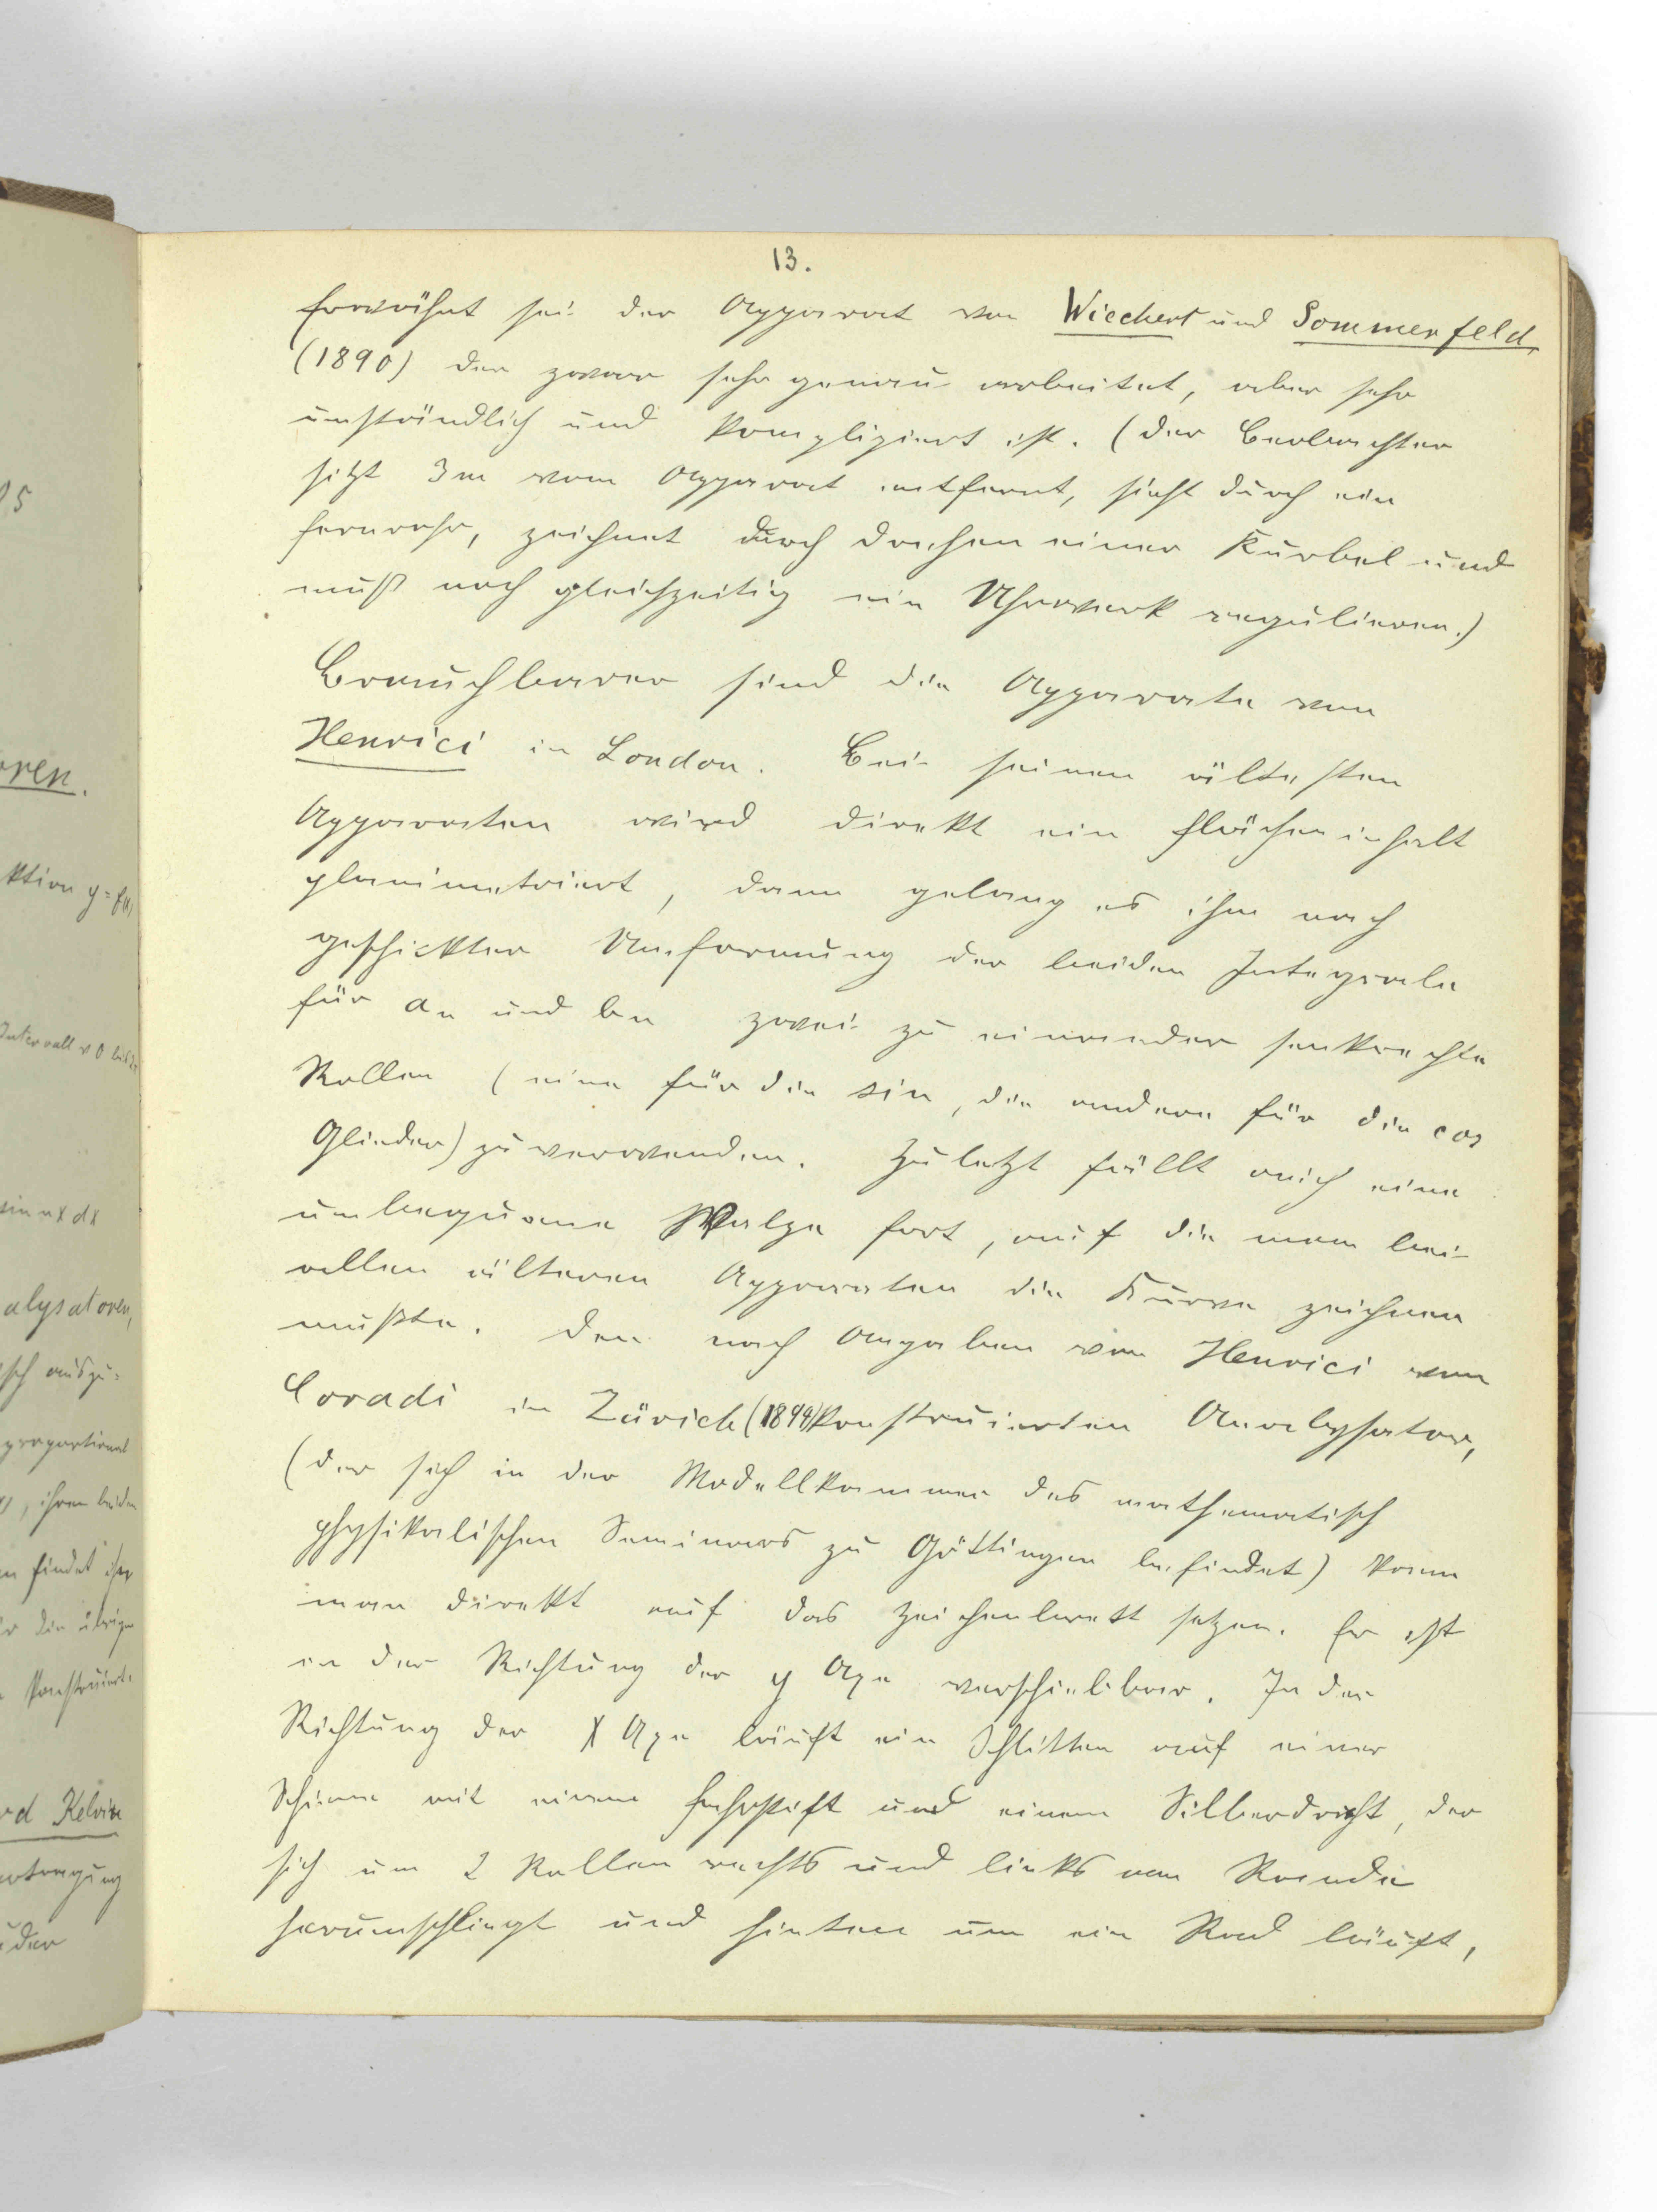 13.
Erwähnt sei der Apparat von Wiechert und Sommerfeld,
(1890) der zwar sehr genau arbeitet, aber sehr
umständlich und kompliziert ist. (der Beobachter
sitzt 3m vom Apparat entfernt, sieht durch ein
Fernrohr, zeichnet durch drehen einer Kurbel und
muß noch gleichzeitig ein Uhrwerk regulieren.)
Brauchbarer sind die Apparate von
Henrici in London. Bei seinen ältesten
Apparaten wird direkt ein Flächeninhalt
planimetriert, dann gelang es ihm nach
geschickter Umformung der beiden Integrale
für an und bn zwei zu einander senkrechte
Rollen (eine für die sin, die andere für die cos
Glieder) zu verwenden. Zuletzt fällt auch eine
unbequeme Walze fort, auf die man bei
allen älteren Apparaten die Kurve zeichnen
mußte. Den nach Angaben von Henrici von
Coradi in Zürich (1894) konstruierten Analysator,
(der sich in der Modellkammer des mathematisch
physikalischen Seminars zu Göttingen befindet) kann
man direkt auf das Zeichenbrett setzen. Er ist
in der Richtung der y Axe verschiebbar. In der
Richtung der X Axe läuft ein Schlitten auf einer
Schiene mit einem Fahrstift und einem Silberdraht, der
sich um 2 Rollen rechts und links am Rande
herumschlingt und hinten um ein Rad läuft,
15
oren.
ktion y = f(x)
Intervall v 0 bis
sin nx dx
alysatoren,
sch auszu=
proportional
, ihren beiden
findet
die übrigen
konstruiert.
rd Kelvin